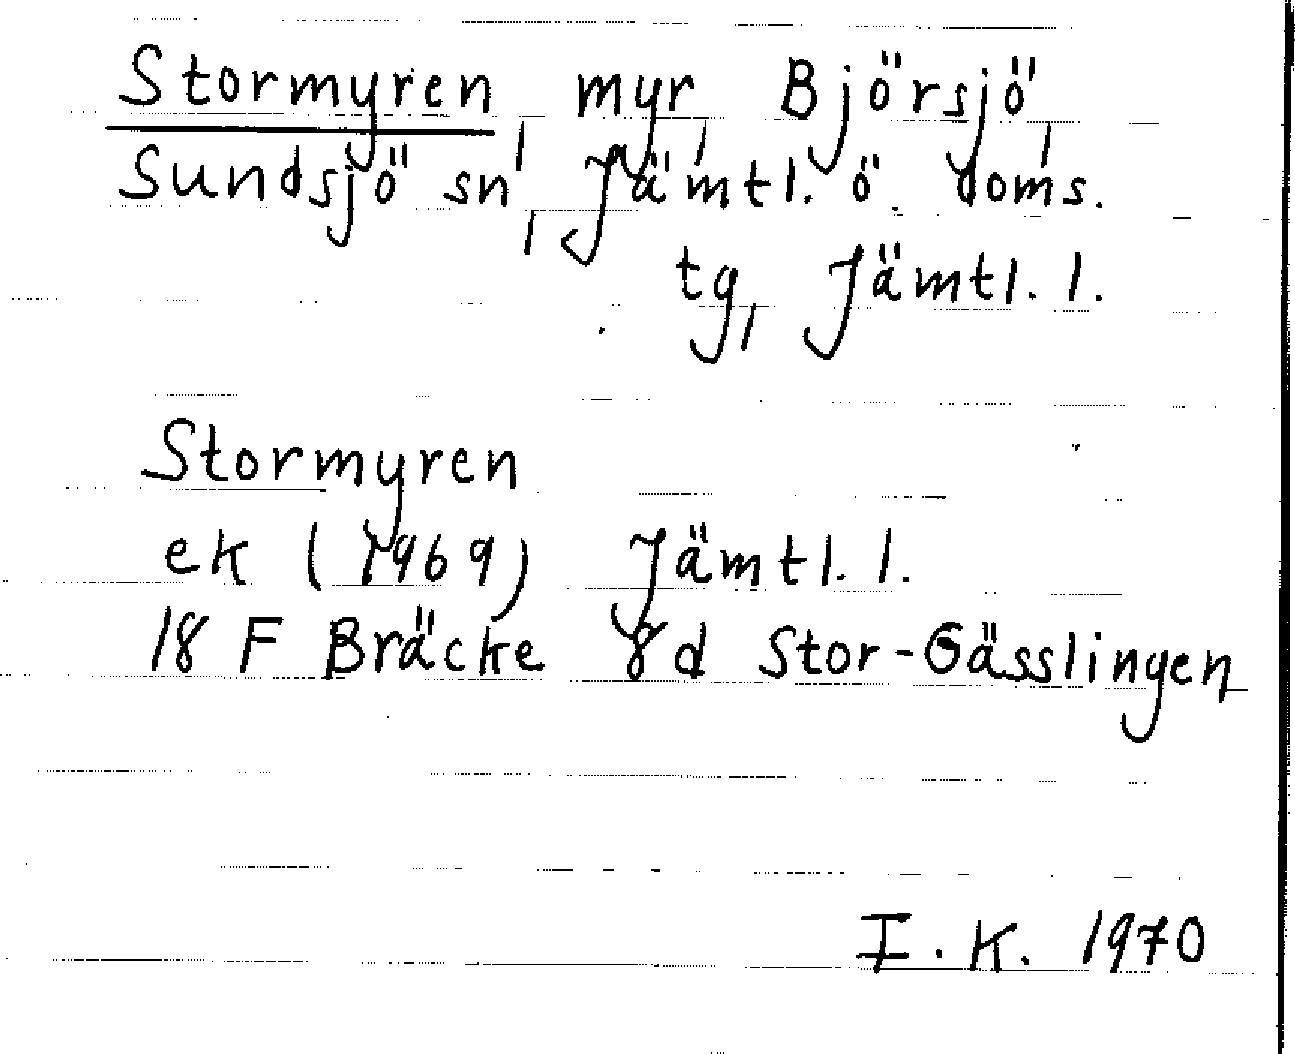 Stormyren, myr, Björsjö,
Sundsjö sn, Jämtl. ö doms.
tg, Jämtl. l.
Stormyren
ek (1969) Jämtl. l.
18 F Bräcke 8d Stor-Gässlingen
I. K. 1970